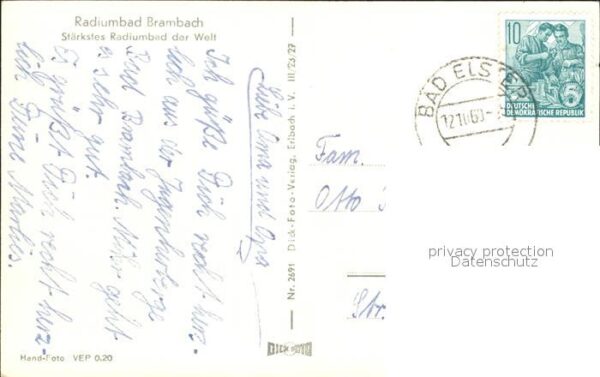 Radiumbad Brambach
Stärkstes Radiumbad der Welt
Liebe Oma und Opa
Ich grüße Dich recht herz-
lich aus der Jugendherberge
Bad Brambach. Mir geht
es sehr gut.
Es grüßt Dich recht herz-
lich Deine Marlis.
Hand-Foto VEP 0.20
Nr. 2691 Dick-Foto-Verlag, Erlbach i. V. III/26/27
DICK FOTO
Fam.
Otto
Str.
BAD ELSTER
10
DEUTSCHE
DEMOKRATISCHE REPUBLIK
privacy protection
Datenschutz